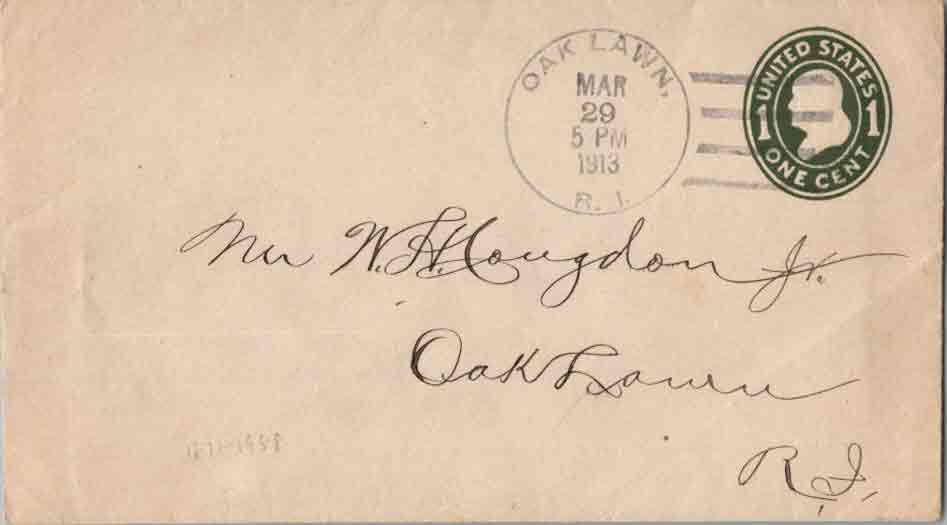 OAK LAWN,
MAR
29
5 PM
1913
R. I.
UNITED STATES
1 1
ONE CENT
Mr W. H. Congdon Jr.
Oak Lawn
R. I.